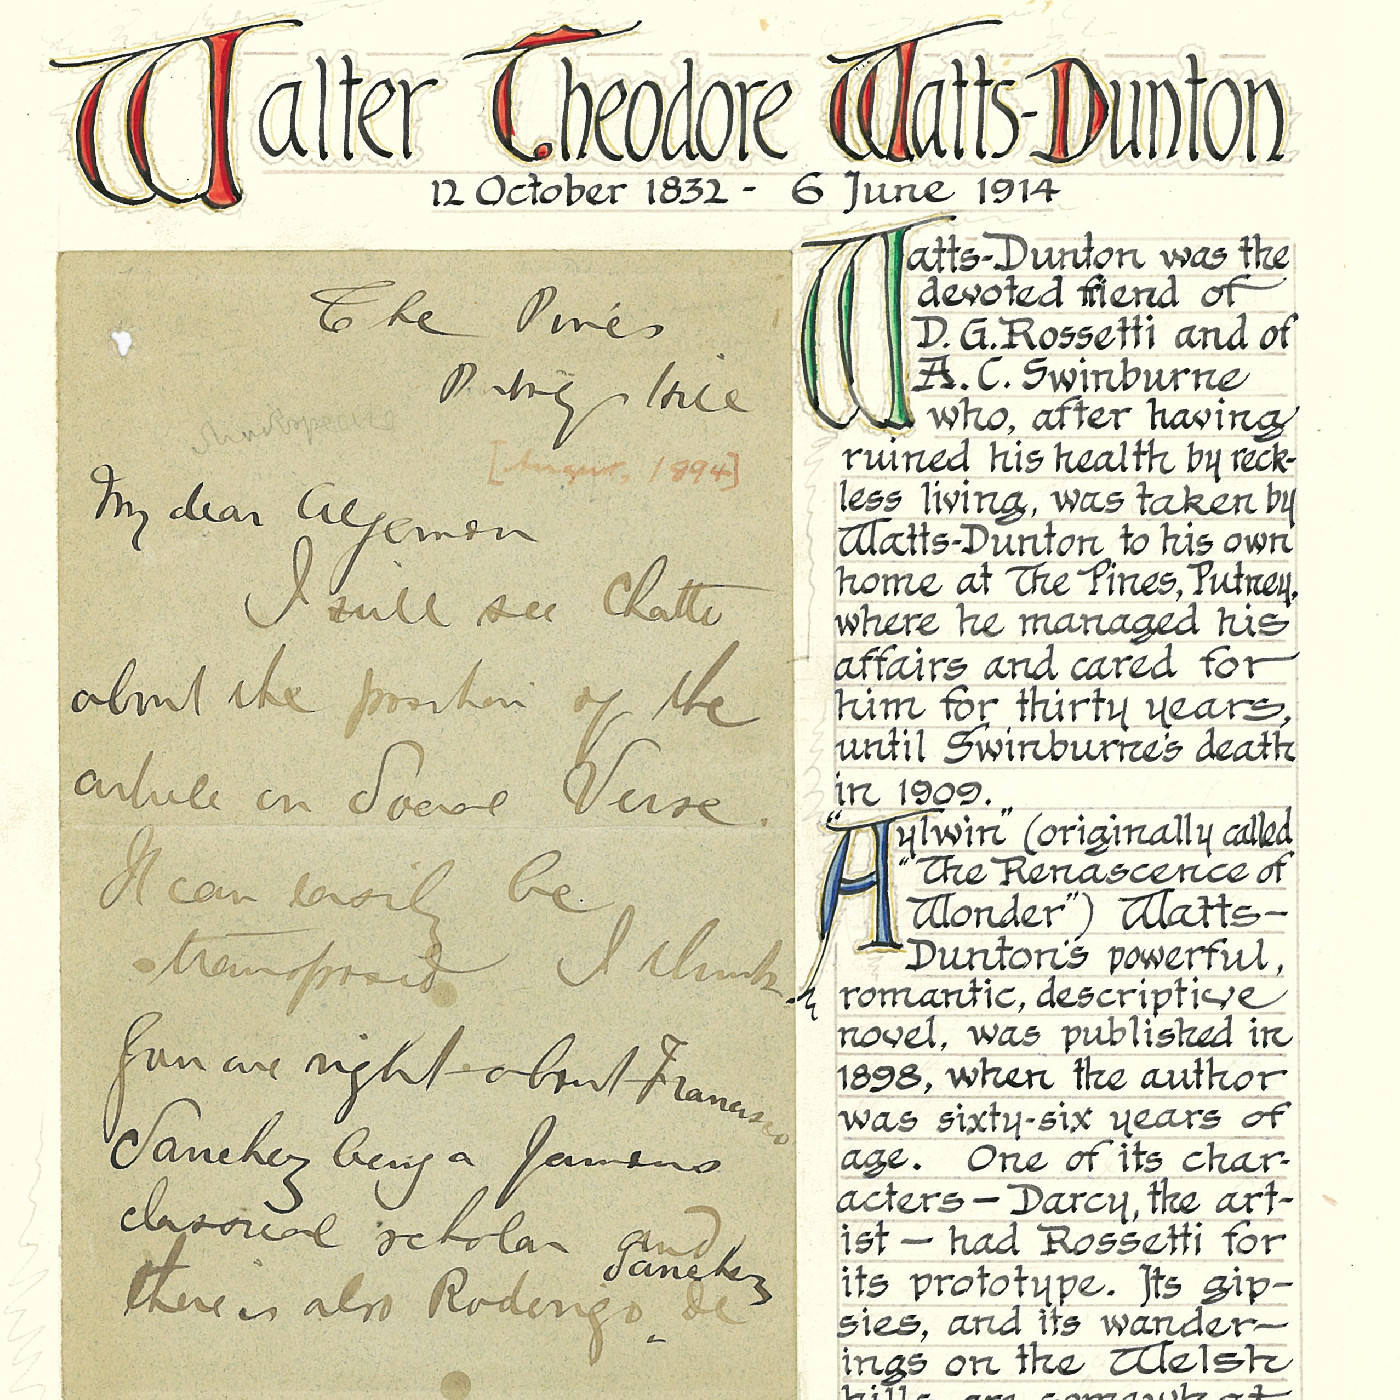 Walter Theodore Watts-Dunton
12 October 1832 - 6 June 1914
The Pines
Putney Hill
[August, 1894]
My dear Algernon
I will see Chatto
about the position of the
article on Social Verse.
It can easily be
transposed I think.
You are right about Francisco
Sanchez being a famous
classical scholar and
Sanchez
there is also Roderigo de
Watts-Dunton was the
devoted friend of
D. G. Rossetti and of
A. C. Swinburne
who, after having
ruined his health by reck-
less living, was taken by
Watts-Dunton to his own
home at The Pines, Putney,
where he managed his
affairs and cared for
him for thirty years,
until Swinburne's death
in 1909.
"Aylwin" (originally called
"The Renascence of
Wonder") Watts-
Dunton's powerful,
romantic, descriptive
novel, was published in
1898, when the author
was sixty-six years of
age. One of its char-
acters — Darcy, the art-
ist — had Rossetti for
its prototype. Its gip-
sies, and its wander-
ings on the Welsh